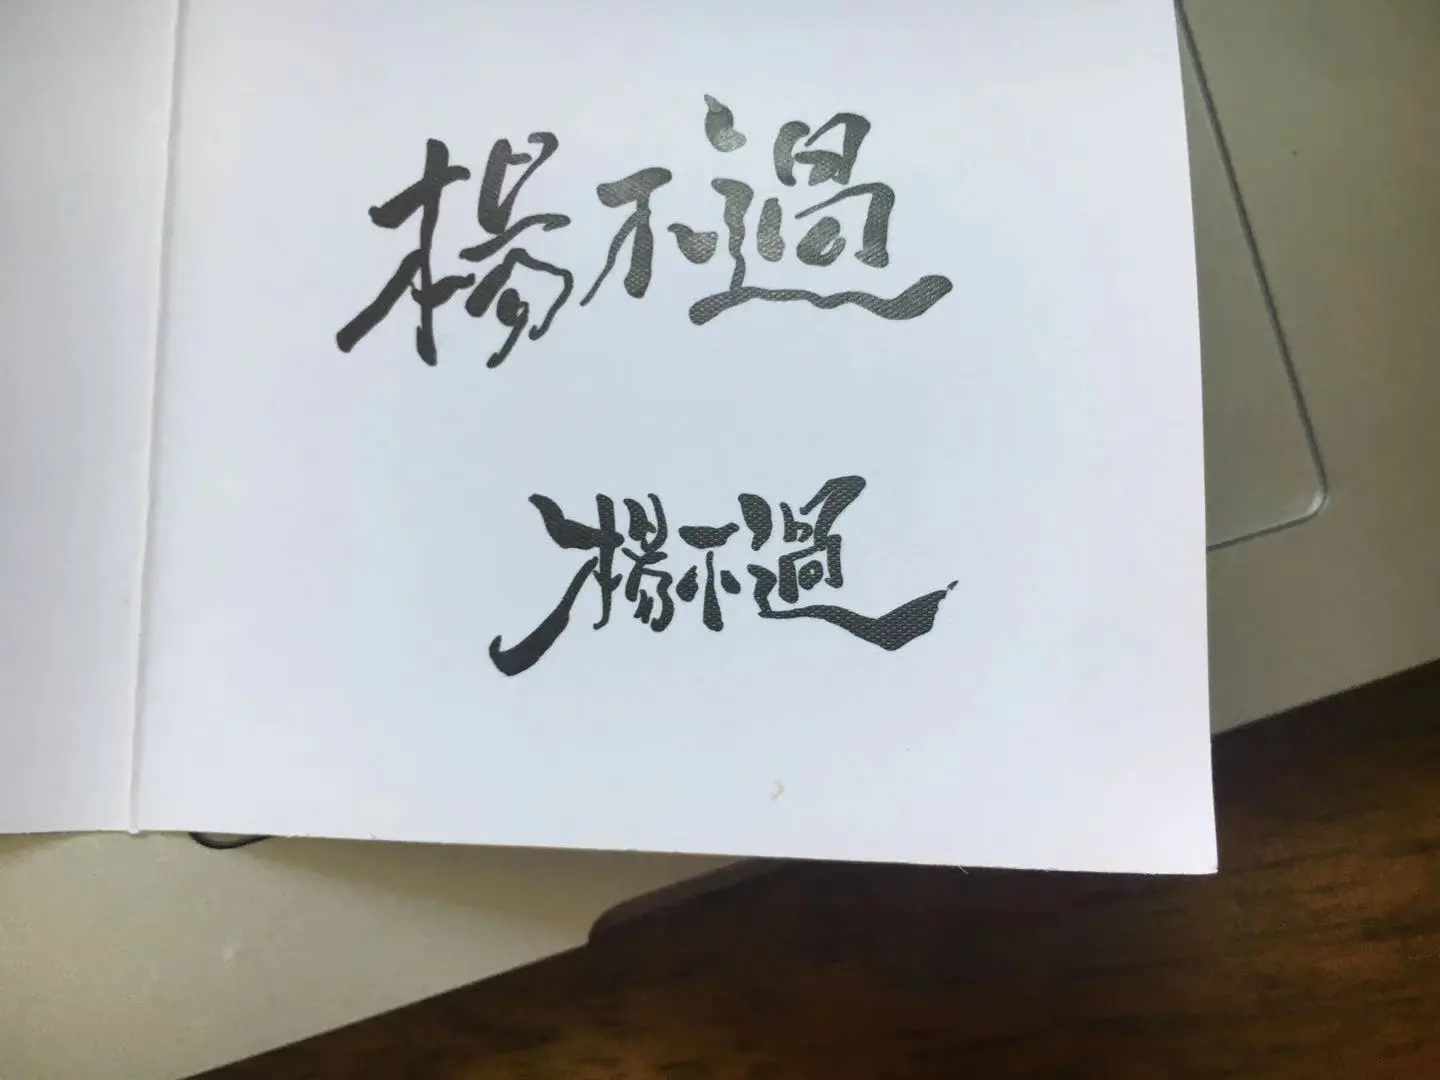 楊不過
楊不過